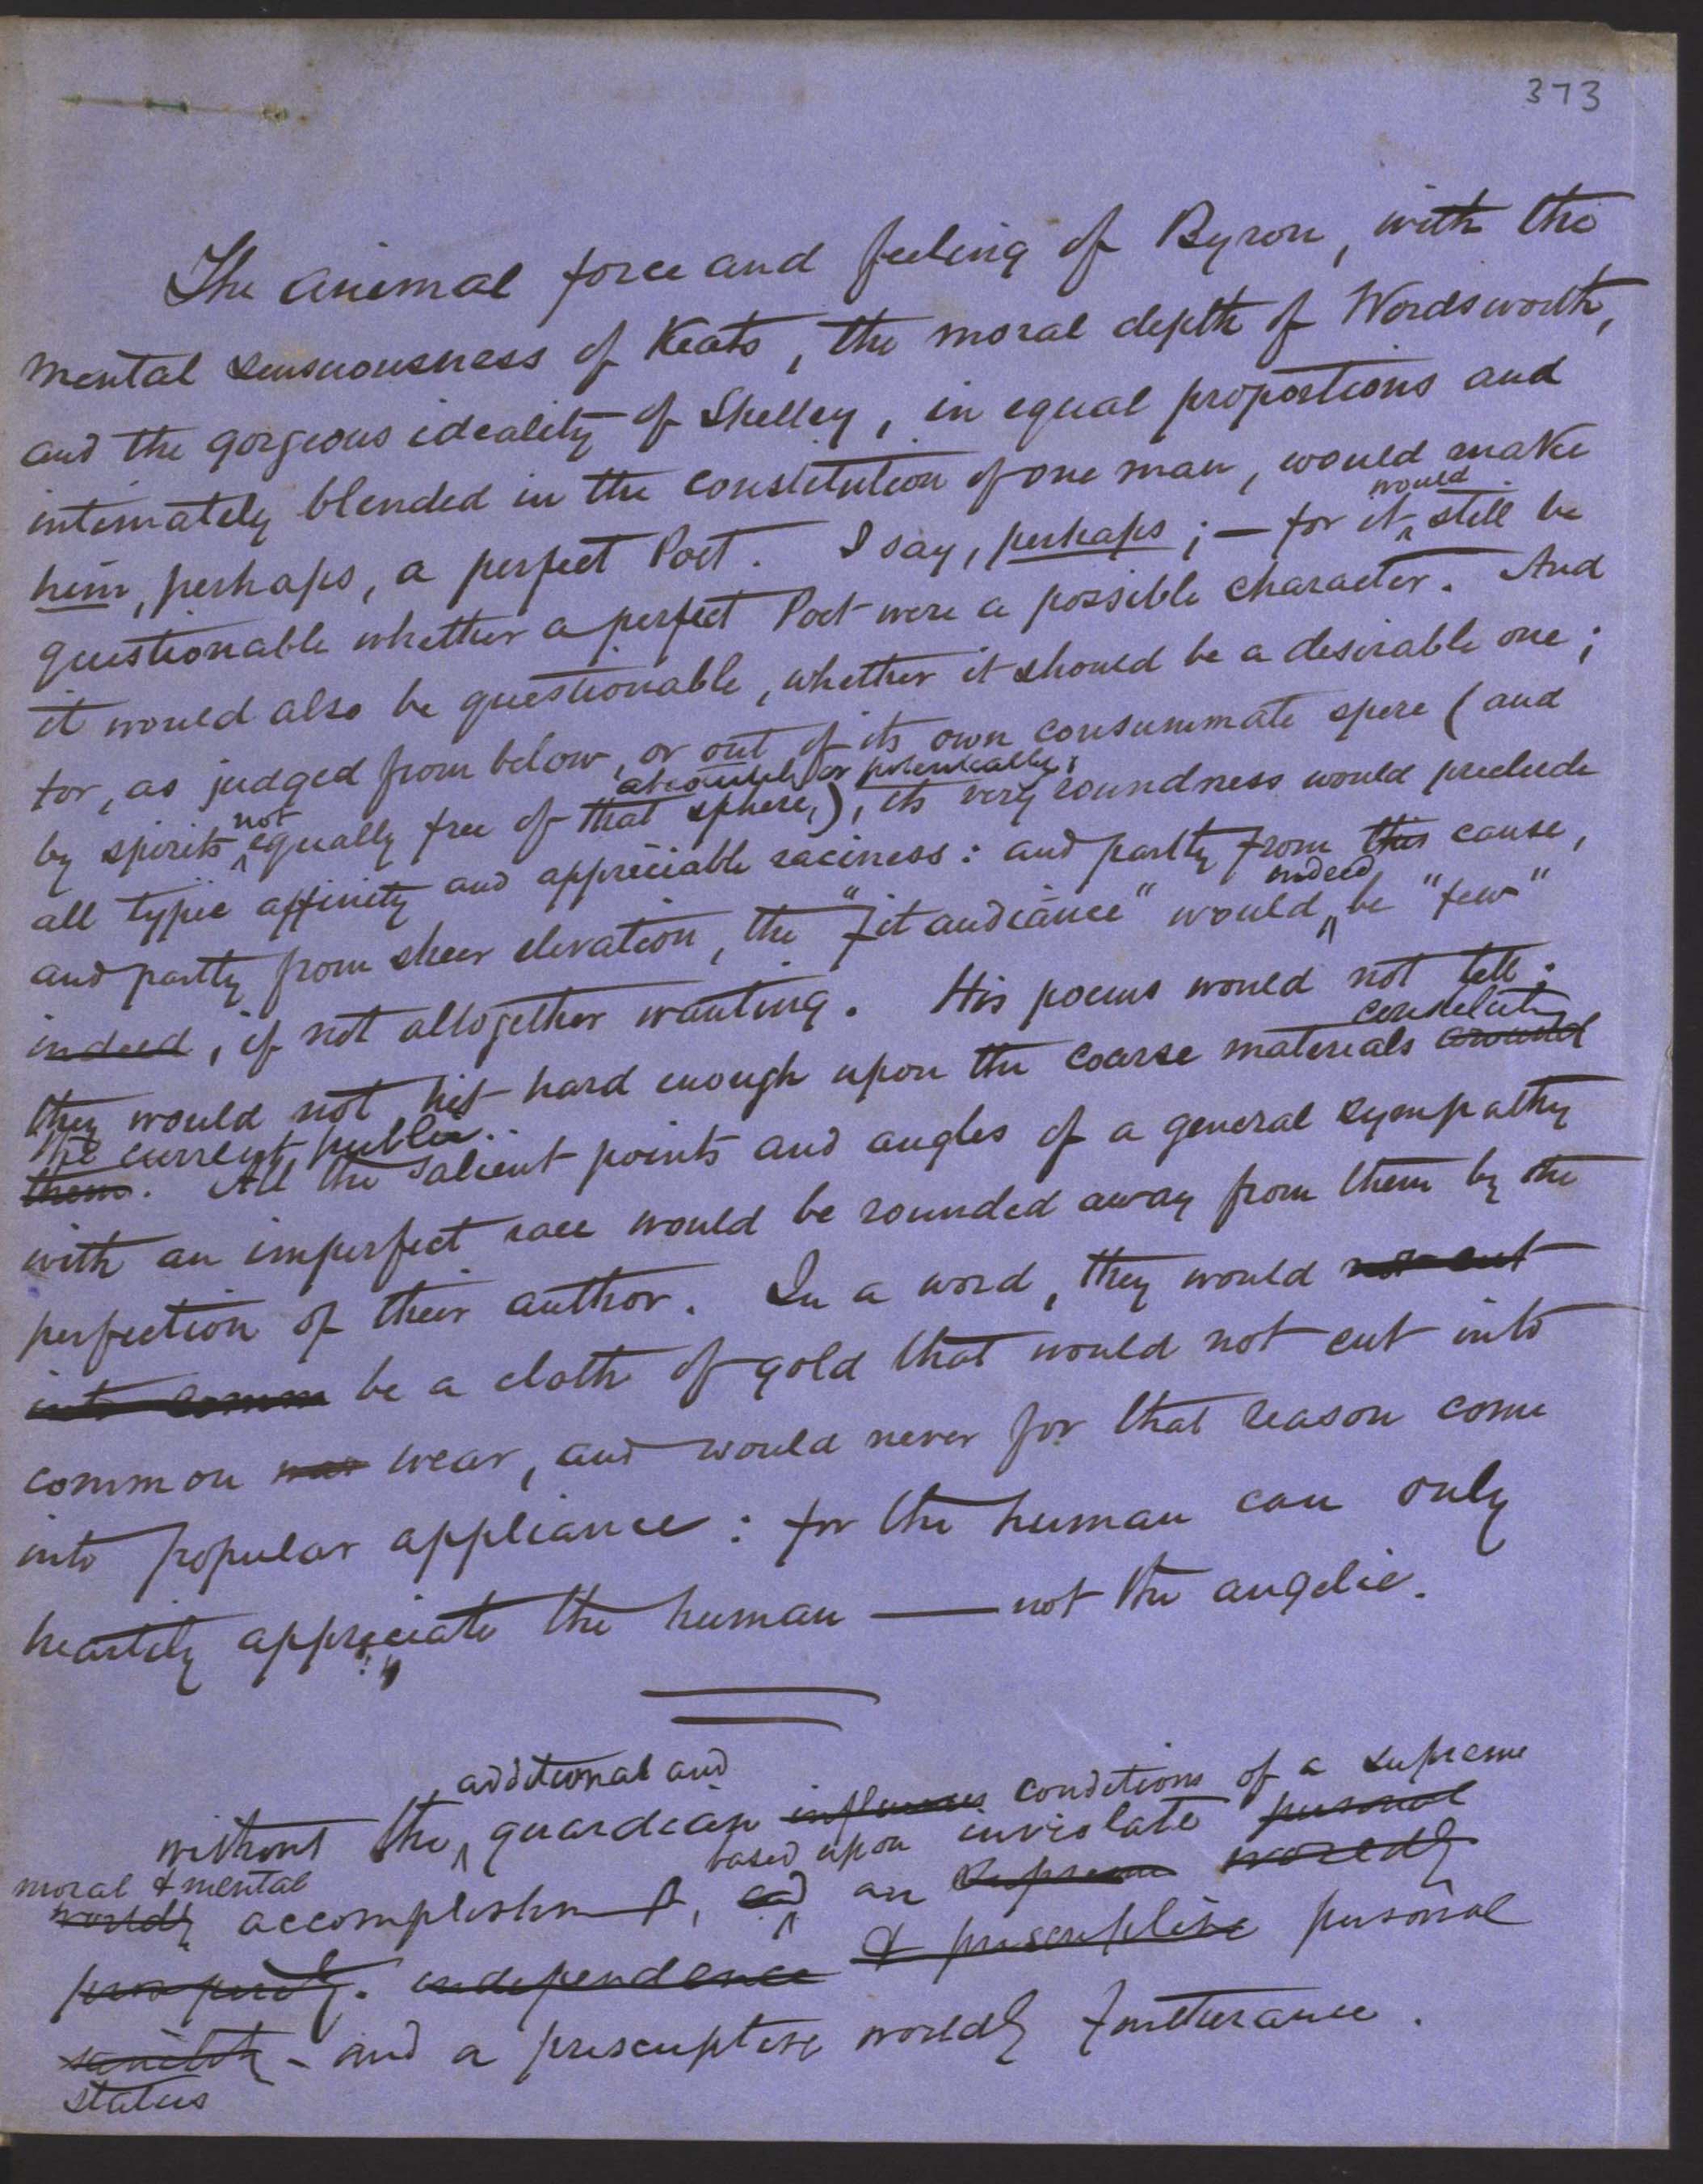 373
The animal force and feeling of Byron, with the
mental sensuousness of Keats, the moral depth of Wordsworth,
and the gorgeous ideality of Shelley, in equal proportions and
intimately blended in the constitution of one man, would make
would
him, perhaps, a perfect Poet. I say, perhaps; — for it ^ still be
questionable whether a perfect Poet were a possible character. And
it would also be questionable, whether it should be a desirable one;
for, as judged from below, or out of its own consummate spere (and
not absolutely or potentially,
by spirits ^ equally free of that sphere,), its very roundness would preclude
all typic affinity and appreciable raciness: and partly from this cause,
indeed
and partly from sheer elevation, the "fit audiance" would ^ be "few"
indeed, if not altogether wanting. His poems would not tell:
they would not hit hard enough upon the coarse materials around
the current public.
them. All the salient points and angles of a general sympathy
with an imperfect race would be rounded away from them by the
perfection of their author. In a word, they would not cut
into comm be a cloth of gold that would not cut into
common wear, and would never for that reason come
into popular appliance: for the human can only
heartily appreciate the human — not the angelic.
additional and
without the ^ guardian influences conditions of a supreme
moral & mental based upon inviolate personal
worldly accomplishmt, and ^ an supreme worldly
prosperity. independence & prescriptive personal
and a prescriptive worldly furtherance.
status